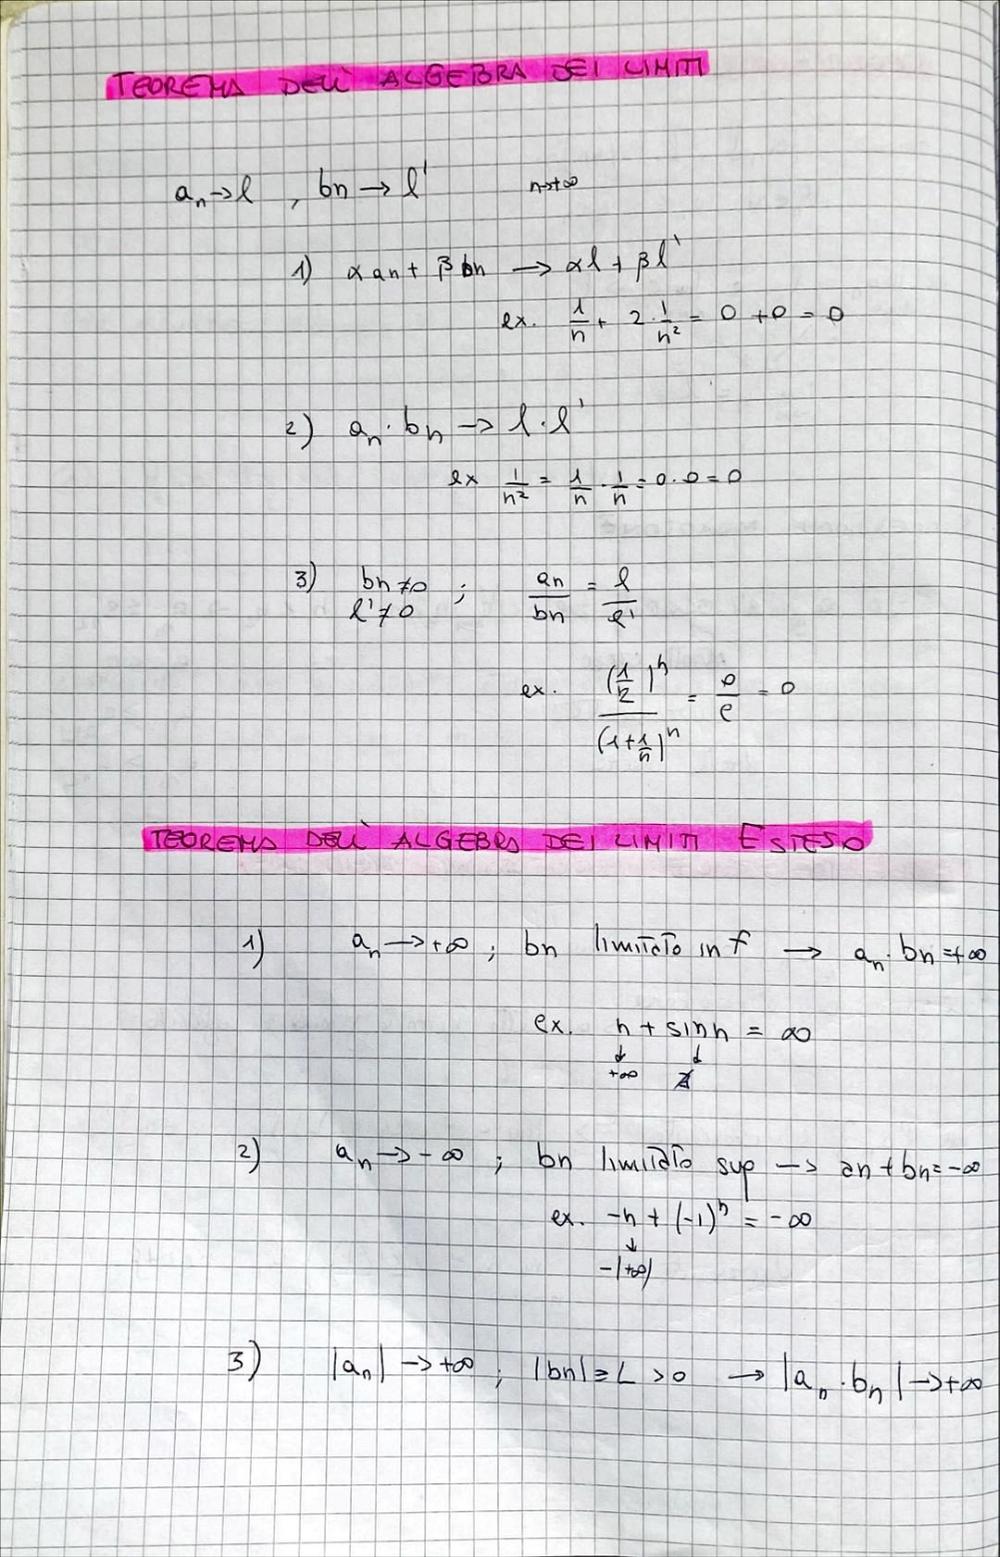 TEOREMA DELL' ALGEBRA DEI LIMITI
aₙ → l , bn → l' n→+∞
1) α an + β bn → αl + βl'
ex. 1/n + 2·1/n² = 0 + 0 = 0
2) aₙ · bₙ → l · l'
ex 1/n² = 1/n · 1/n = 0·0 = 0
3) bn ≠ 0 ; an/bn = l/l'
l' ≠ 0
ex. (1/2)ⁿ / (1+1/n)ⁿ = 0/e = 0
TEOREMA DELL' ALGEBRA DEI LIMITI ESTESO
1) aₙ → +∞ ; bn limitato inf → aₙ · bn = +∞
ex. n + sin n = ∞
↓ ↓
+∞ ∄
2) aₙ → -∞ ; bn limitato sup → an + bn = -∞
ex. -n + (-1)ⁿ = -∞
↓
-(+∞)
3) |aₙ| → +∞ ; |bn| ≥ L > 0 → |aₙ · bₙ| → +∞